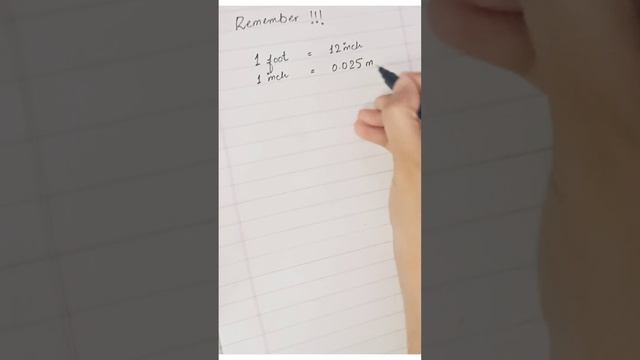 Remember !!!
1 foot = 12 inch
1 inch = 0.025 m